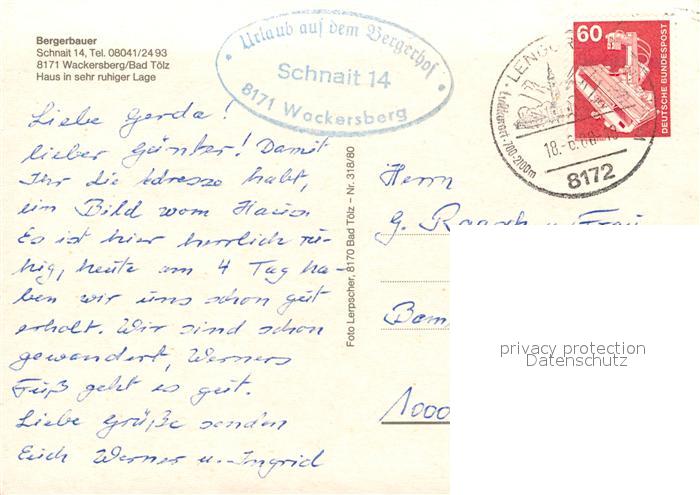 Bergerbauer
Schnait 14, Tel. 08041/24 93
8171 Wackersberg/Bad Tölz
Haus in sehr ruhiger Lage
Urlaub auf dem Bergerhof
Schnait 14
8171 Wackersberg
60
DEUTSCHE BUNDESPOST
Luftkurort · 700-2100m
18.-6.
8172
Liebe Gerda!
lieber Günter! Damit
Ihr die Adresse habt,
ein Bild vom Haus
Es ist hier herrlich ru-
hig, heute am 4 Tag ha-
ben wir uns schon gut
erholt. Wir sind schon
gewandert, Werners
Fuß geht es gut.
Liebe Grüße senden
Euch Werner u. Ingrid
Foto Lerpscher, 8170 Bad Tölz – Nr. 318/80
Herrn
G. u. Frau
1000
privacy protection
Datenschutz